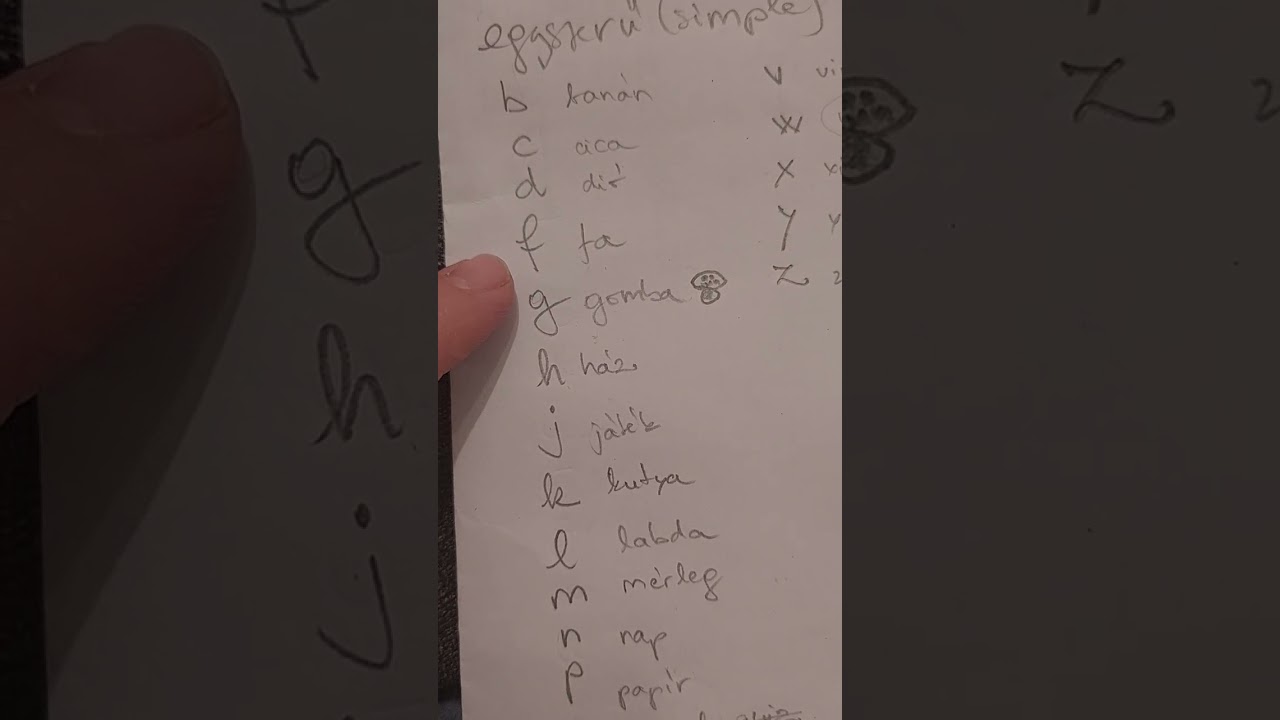 egyszerű (simple)
b banán
c cica
d dió
f fa
g gomba
h ház
j játék
k kutya
l labda
m mérleg
n nap
p papír
v
w
x
y
z